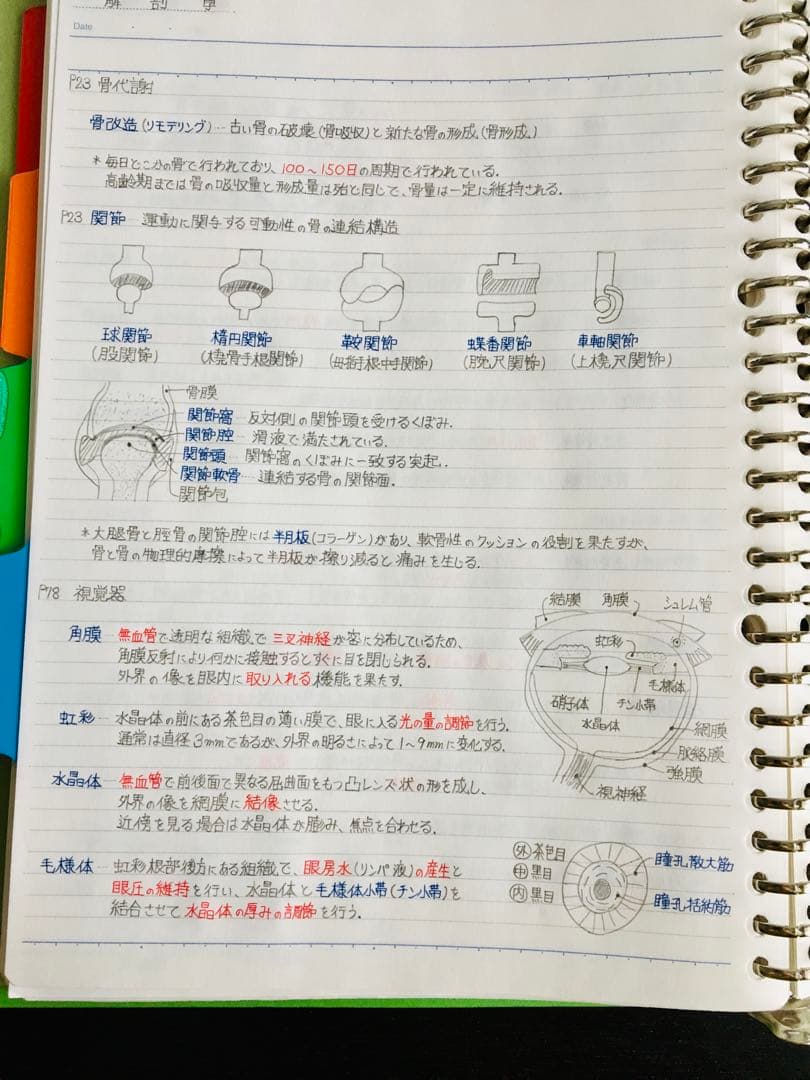 解剖学
Date
P23 骨代謝
骨改造(リモデリング)… 古い骨の破壊(骨吸収)と新たな骨の形成(骨形成)
*毎日どこかの骨で行われており、100〜150日の周期で行われている.
高齢期までは骨の吸収量と形成量は殆ど同じで、骨量は一定に維持される.
P23 関節… 運動に関与する可動性の骨の連結構造
球関節 楕円関節 鞍関節 蝶番関節 車軸関節
(股関節) (橈骨手根関節) (母指手根中手関節) (腕尺関節) (上橈尺関節)
骨膜
関節窩 反対側の関節頭を受けるくぼみ.
関節腔… 滑液で満たされている.
関節頭… 関節窩のくぼみに一致する突起.
関節軟骨… 連結する骨の関節面.
関節包
*大腿骨と脛骨の関節腔には半月板(コラーゲン)があり、軟骨性のクッションの役割を果たすが、
骨と骨の物理的摩擦によって半月板が擦り減ると痛みを生じる.
P18 視覚器
角膜… 無血管で透明な組織で三叉神経が密に分布しているため、
角膜反射により何かに接触するとすぐに目を閉じられる.
外界の像を眼内に取り入れる機能を果たす.
虹彩… 水晶体の前にある茶色目の薄い膜で、眼に入る光の量の調節を行う.
通常は直径3mmであるが、外界の明るさによって1〜9mmに変化する.
水晶体… 無血管で前後面で異なる屈曲面をもつ凸レンズ状の形を成し、
外界の像を網膜に結像させる.
近傍を見る場合は水晶体が膨み、焦点を合わせる.
毛様体… 虹彩根部後方にある組織で、眼房水(リンパ液)の産生と
眼圧の維持を行い、水晶体と毛様体小帯(チン小帯)を
結合させて水晶体の厚みの調節を行う.
結膜 角膜 シュレム管
虹彩
毛様体
硝子体 チン小帯
水晶体
網膜
脈絡膜
強膜
視神経
外 茶色目
中 黒目
内 黒目
瞳孔散大筋
瞳孔括約筋